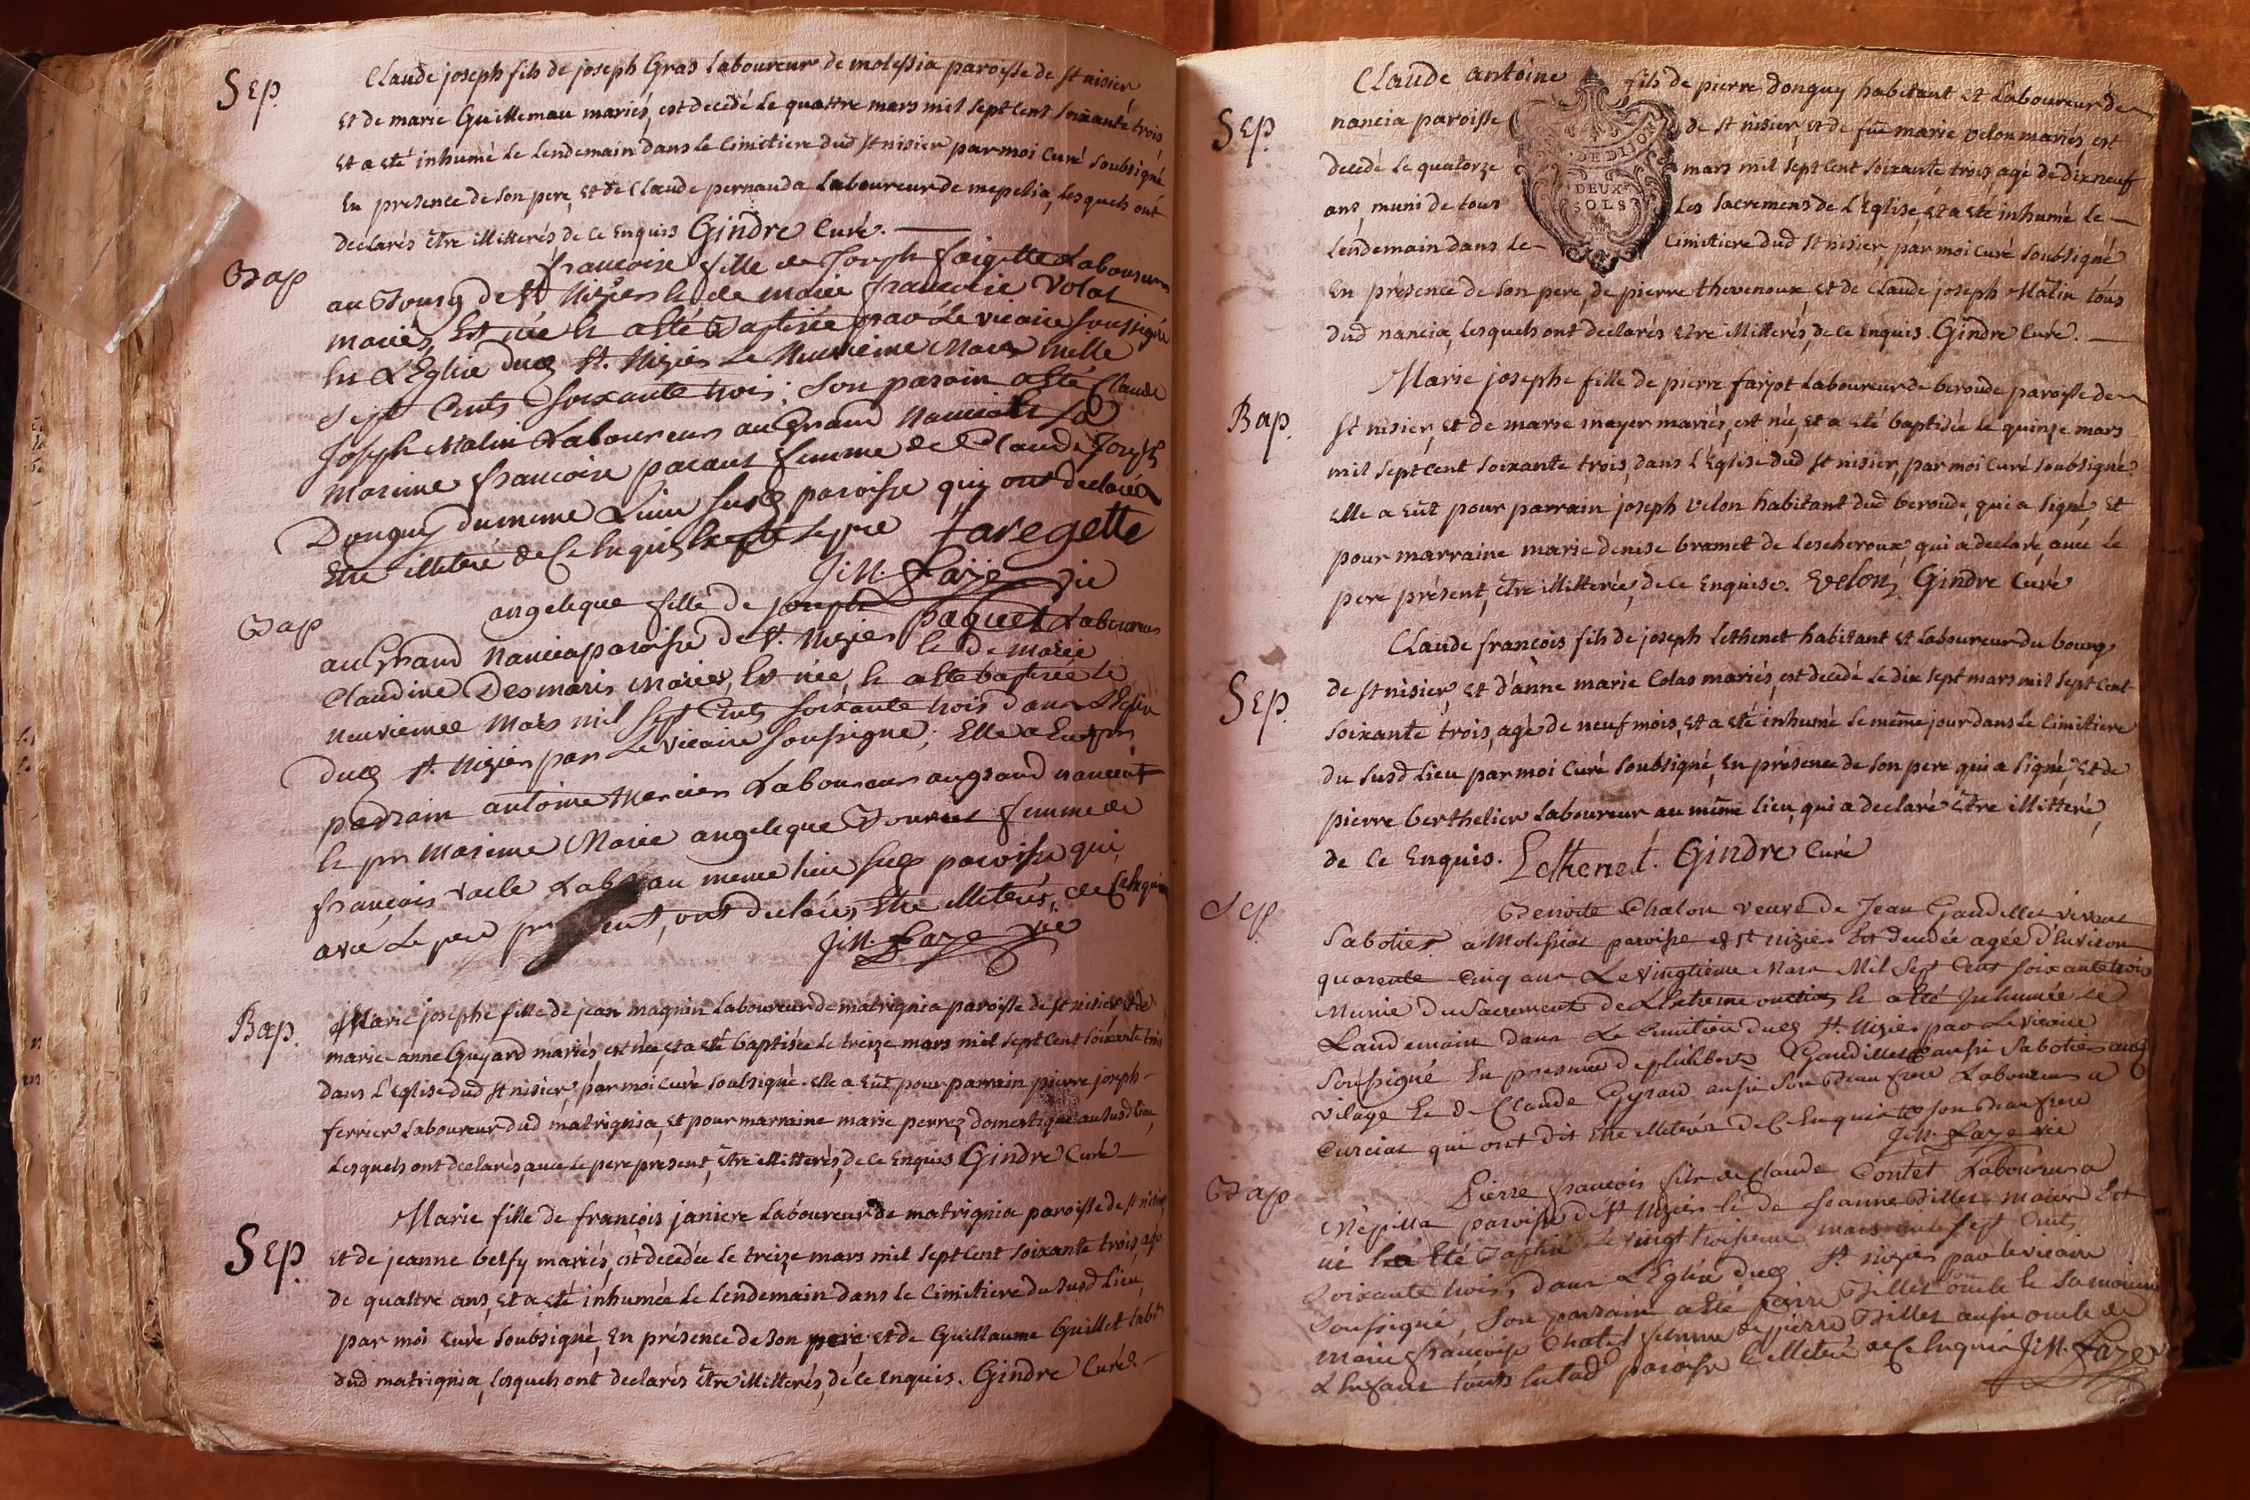 Sep.
Claude joseph fils de joseph Gras laboureur de molessia paroisse de st nisier
et de marie Guillemau mariés, est decedé le quattre mars mil sept cent soixante trois
et a eté inhumé le lendemain dans le cimitiere dud st nisier par moi curé soubsigné
en presence de son pere, et de Claude pernauda laboureur de mepelia, lesquels ont
declarés être illitterés de ce enquis Gindre curé.
Bap
francoise fille de Joseph faigette Laboureur
au Bourg de St Nizier & de marie francoise Volat
mariés, Est née & a Eté Baptisée par Le vicaire soussigné
En L'Eglise dud St. Nizier Le Neuvieme Mars mille
Sept Cents soixante trois; Son parain a Eté Claude
Joseph Malin Laboureur au Grand Nancia & sa
Maraine francoise pacaut femme de Claude Joseph
Donguy du meme Lieu susd paroisse quy ont declarés
Etre illiteré de Ce Enquis le pere Faregette
J: M. Faze vic
Bap
angelique fille de Joseph paquet Laboureur
au Grand Nancia paroisse de St. Nizier & de Marie
Claudine Desmaris Mariés, Est née, & a Eté baptisée le
neuvieme Mars mil Sept Cents soixante trois dans L'Eglise
dud St. Nizier par Le vicaire soussigné; Elle a Eu pour
parrain antoine Mercier Laboureur au grand nancia
& pr Maraine Marie angelique Bourcet femme de
françois vacle Lab. au meme lieu susd paroisse qui,
avec Le pere present, ont declarés Etre illiterés, de Ce Enquis
J: M. Faze vic
Bap.
Marie josephe fille de jean magnin laboureur de matrignia paroisse de st nisier et de
marie anne Guyard mariés est née et a eté baptisée le treize mars mil sept cent soixante trois
dans l'Eglise dud st nisier, par moi curé soubsigné. elle a eüt pour parrain pierre joseph
ferrier laboureur dud matrignia, et pour marraine marie perrez domestique au susd lieu,
lesquels ont declarés, avec le pere present, être illitterés, de ce enquis Gindre Curé
Sep.
Marie fille de françois janiere laboureur de matrignia paroisse de st nisier
et de jeanne betfy mariés, est decedée le treize mars mil sept cent soixante trois, agé
de quattre ans, et a eté inhumée le lendemain dans le cimitiere du susd lieu,
par moi curé soubsigné, en présence de son pere, et de Guillaume Guillot labr
dud matrignia, lesquels ont declarés être illitterés, de ce enquis. Gindre Curé
Sep.
Claude antoine fils de pierre donguy habitant et laboureur de
nancia paroisse de st nisier, et de füe marie velon mariés, est
decedé le quatorze mars mil sept cent soixante trois, agé de dix neuf
ans, muni de tous les sacremens de l'Eglise, et a eté inhumé le
lendemain dans le cimitiere dud st nisier, par moi curé soubsigné
DE DIJON
DEUX
SOLS
en présence de son pere, de pierre thevenoux, et de Claude joseph Malin tous
dud nancia, lesquels ont declarés etre illitterés, de ce enquis. Gindre Curé.
Bap.
Marie josephe fille de pierre farjot laboureur de beroude paroisse de
st nisier, et de marie meyer mariés, est née, et a eté baptisée le quinze mars
mil sept cent soixante trois, dans l'Eglise dud st nisier, par moi curé soubsigné
elle a eüt pour parrain joseph velon habitant dud beroude, qui a signé, et
pour marraine marie denise bramet de lescheroux qui a declaré, avec le
pere présent, être illitterée, de ce enquise. Velon, Gindre Curé
Sep.
Claude françois fils de joseph lethenet habitant et laboureur du bourg
de st nisier, et d'anne marie Colas mariés, est decedé le dix sept mars mil sept cent
soixante trois, agé de neuf mois, et a eté inhumé le même jour dans le cimitiere
du susd lieu par moi curé soubsigné, en présence de son pere qui a signé, et de
pierre berthelier laboureur au même lieu, qui a declaré être illitteré,
de ce enquis. Lethenet. Gindre Curé
Sep
Benoite Chalon veuve de Jean Gaudillet vivant
Sabotier a Molessiat paroisse de St nizier Est decedée agée d'Environ
quarente Cinq ans Le vingtieme Mars Mil Sept Cents soixante trois
Munie du Sacrement de L'Extreme onction & a Eté Inhumée Le
Landemain dans Le Cimitiere dud St. Nizier par Le vicaire
Soussigné En presence de philibert Gaudillet aussi Sabotier aud
vilage & de Claude Gyraud aussi Son Beau frere Laboureur a
Curciat qui ont dit Etre illiterés de Ce Enquis son Beau frere
J: M. Faze vic
Bap
Pierre francois fils de Claude Contet Laboureur a
Mépillia paroisse de St Nizier & de Jeanne Billet mariés Est
né & a Eté Baptisé le vingt troisieme mars mil sept Cents
soixante trois, dans L'Eglise dud St. nizier par le vicaire
Soussigné, Son parrain a Eté pierre Billet oncle & Sa maraine
Marie francoise Chatel femme de pierre Billet aussi oncle de
L'Enfant touts Lad paroisse & illiteré de Ce Enquis J: M. Faze